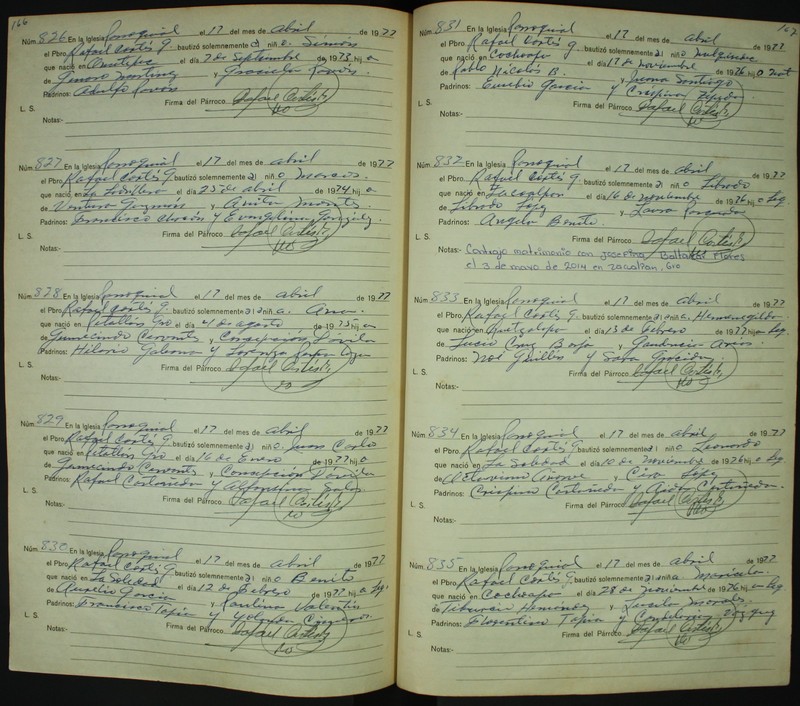 166
Núm. 826 En la Iglesia Parroquial el 17 del mes de Abril de 1977
el Pbro. Rafael Cortés G. bautizó solemnemente a niño Simón
que nació en el día 7 de Septiembre de 1973 hijo
de Martínez y Graciela
Padrinos: Adolfo
Firma del Párroco Rafael Cortés
L. S.
Notas:
Núm. 827 En la Iglesia Parroquial el 17 del mes de abril de 1977
el Pbro. Rafael Cortés G. bautizó solemnemente a niño Marcos
que nació en el día 25 de abril de 1974 hijo
de Ventura Guzmán y Anita Montes
Padrinos: Francisco y Evangelina González
Firma del Párroco Rafael Cortés
L. S.
Notas:-
Núm. 828 En la Iglesia Parroquial el 17 del mes de abril de 1977
el Pbro. Rafael Cortés G. bautizó solemnemente a niña Ana
que nació en Gro el día 4 de agosto de 1975 hija
de Gumecindo y Concepción Dávila
Padrinos: Hilario y Lorenza
Firma del Párroco Rafael Cortés
L. S.
Notas:-
Núm. 829 En la Iglesia Parroquial el 17 del mes de abril de 1977
el Pbro. Rafael Cortés G. bautizó solemnemente a niño Juan Carlo
que nació en Gro el día 16 de Enero de 1977 hijo
de Gumecindo y Concepción Dávila
Padrinos: Rafael Castañeda y
Firma del Párroco Rafael Cortés
L. S.
Notas:-
Núm. 830 En la Iglesia Parroquial el 17 del mes de abril de 1977
el Pbro. Rafael Cortés G. bautizó solemnemente a niño Benito
que nació en La Soledad el día 12 de Febrero de 1977 hijo Leg.
de Aurelio García y Paulina Valentín
Padrinos: Francisco Tapia y Yolanda
Firma del Párroco Rafael Cortés
L. S.
Notas:-
167
Núm. 831 En la Iglesia Parroquial el 17 del mes de abril de 1977
el Pbro. Rafael Cortés G. bautizó solemnemente a niño
que nació en Cochoapa el día 17 de Noviembre de 1976 hijo Nat
de Pablo Nicolás B. y Juana Santiago
Padrinos: Eusebio García y Crispina
Firma del Párroco Rafael Cortés
L. S.
Notas:-
Núm. 832 En la Iglesia Parroquial el 17 del mes de abril de 1977
el Pbro. Rafael Cortés G. bautizó solemnemente a niño Librado
que nació en el día 16 de Noviembre de 1976 hijo Leg.
de Librado López y
Padrinos: Angela Benito
Firma del Párroco Rafael Cortés
L. S.
Notas:- Contrajo matrimonio con Josefina Baltazar Flores
el 3 de mayo de 2014 en Zacoalpan, Gro
Núm. 833 En la Iglesia Parroquial el 17 del mes de abril de 1977
el Pbro. Rafael Cortés G. bautizó solemnemente a niña Hermenegilda
que nació en el día 13 de Febrero de 1977 hija Leg.
de Lucio Cruz Borja y Gaudencia
Padrinos: Noé Guillén y Sara
Firma del Párroco Rafael Cortés
L. S.
Notas:-
Núm. 834 En la Iglesia Parroquial el 17 del mes de abril de 1977
el Pbro. Rafael Cortés G. bautizó solemnemente a niño Leonardo
que nació en La Soledad el día 10 de Noviembre de 1976 hijo Leg
de Octaviano y Cira López
Padrinos: Crispina Castañeda y Aida Castañeda
Firma del Párroco Rafael Cortés
L. S.
Notas:-
Núm. 835 En la Iglesia Parroquial el 17 del mes de abril de 1977
el Pbro. Rafael Cortés G. bautizó solemnemente a niña Maricela
que nació en Cochoapa el día 28 de Noviembre de 1976 hija Leg
de Tiburcio y Morales
Padrinos: Florentino Tapia y
Firma del Párroco Rafael Cortés
L. S.
Notas:-